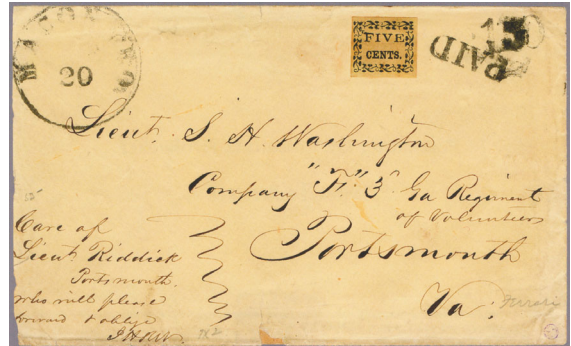 MACON GEO.
20
FIVE
CENTS.
PAID
Lieut. S. H. Washington
Company "F." 3 Ga Regiment
of Volunteers
Portsmouth
Va.
Care of
Lieut Riddick
Portsmouth.
who will please
forward & oblige